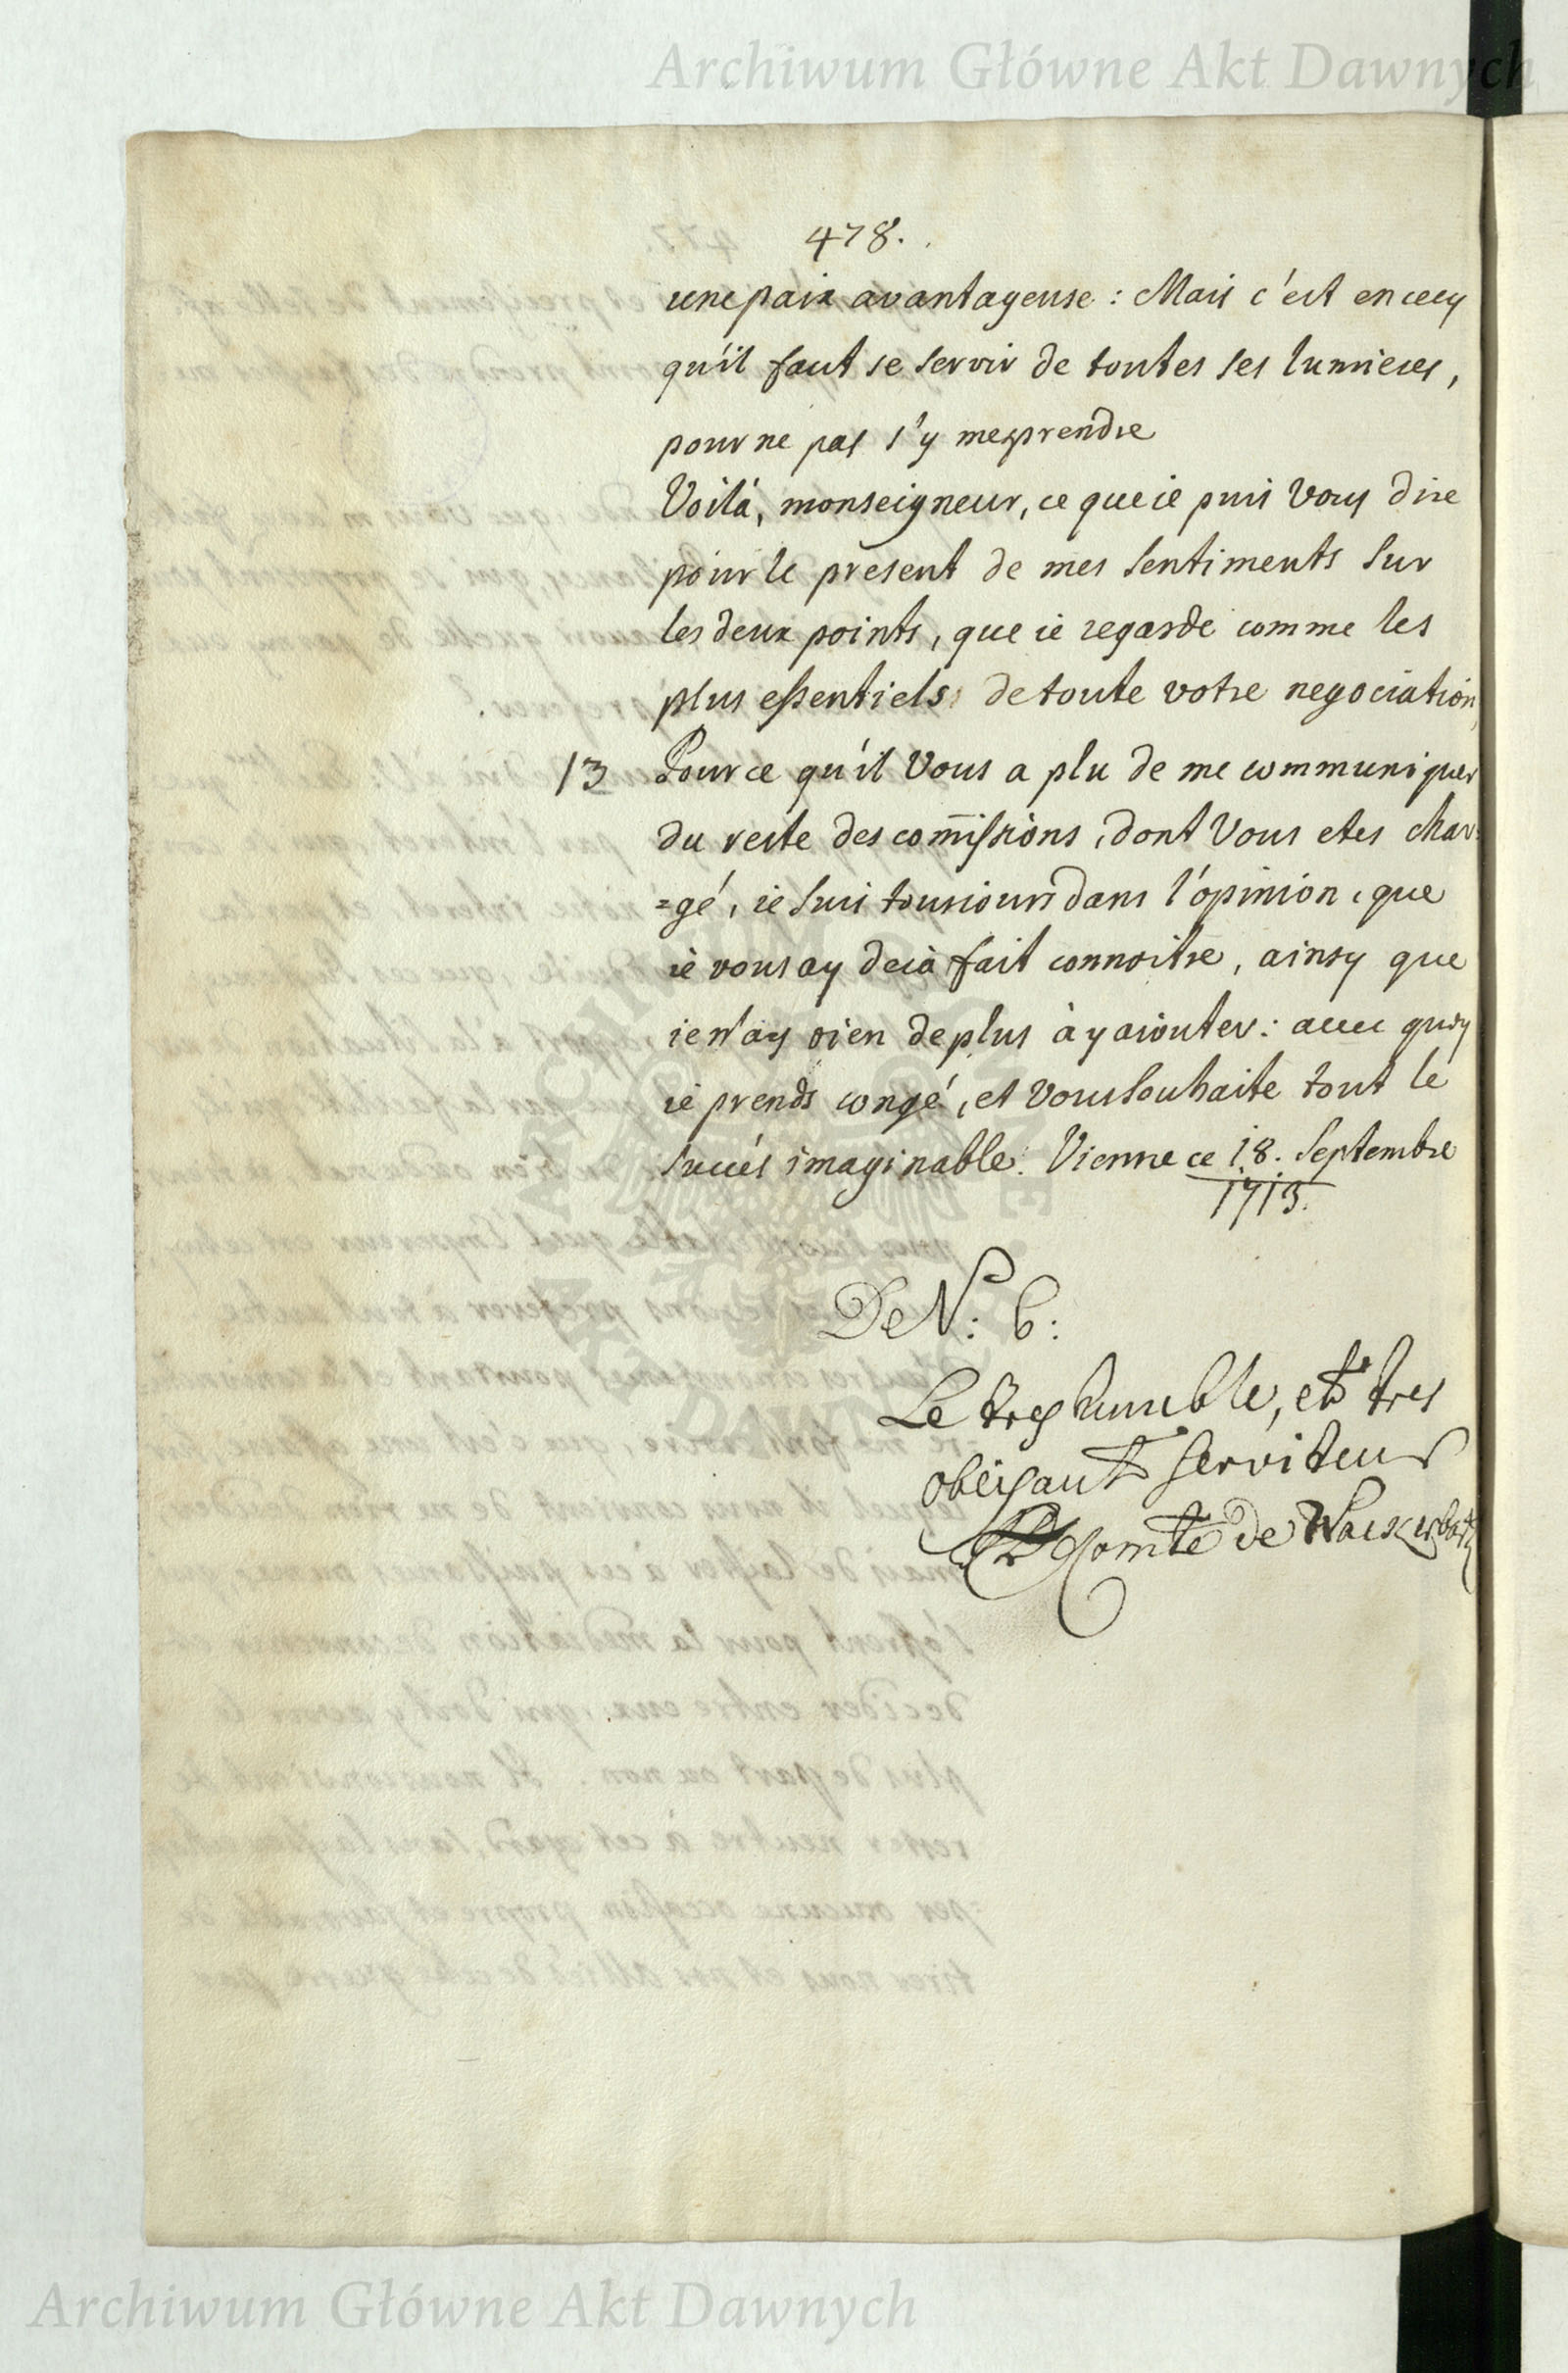 Archiwum Główne Akt Dawnych
478.
une paix avantageuse : Mais c'est en cecy
qu'il faut se servir de toutes ses lumieres,
pour ne pas s'y mesprendre
Voilà, monseigneur, ce que ie puis Vous dire
pour le present de mes sentiments sur
les deux points, que ie regarde comme les
plus essentiels de toute votre negociation
13 Pour ce qu'il Vous a plu de me communiquer
du reste des com̅issions, dont Vous etes char-
=gé, ie suis tousiours dans l'opinion, que
ie vous ay deià fait connoitre, ainsy que
ie n'ay rien de plus à y aiouter : avec quoy
ie prends congé, et vous souhaite tout le
succés imaginable. Vienne ce 18. Septembre
1713.
De V: E:
Le tres humble, et tres
obeisant serviteur
Comte de Wackerbarth
Archiwum Główne Akt Dawnych